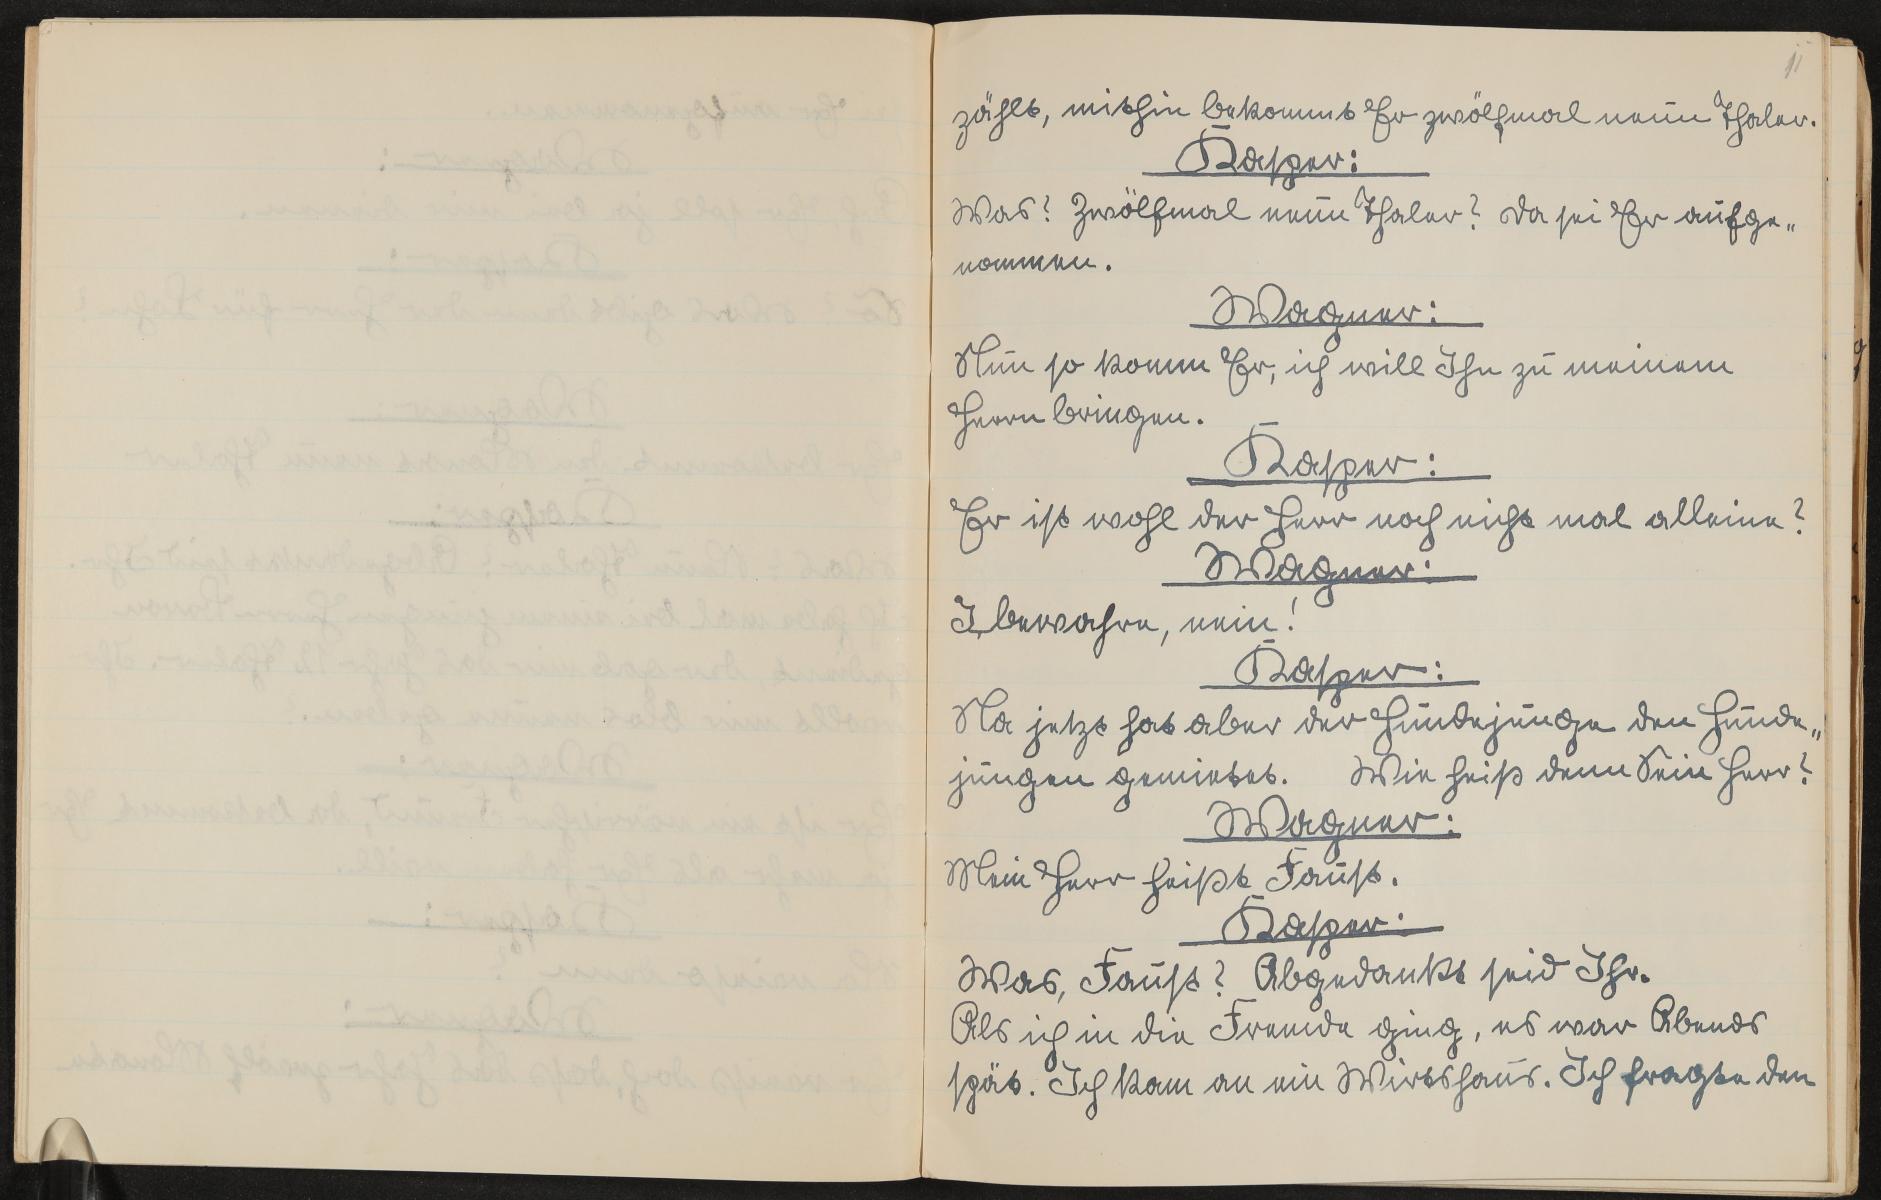 11
zählt, mithin bekommt Er zwölfmal neun Thaler.
Kasper:
Was? Zwölfmal neun Thaler? Da sei Er aufge„
nommen.
Wagner:
Nun so komm Er, ich will Ihn zu meinem
Herrn bringen.
Kasper:
Er ist wohl der Herr noch nicht mal alleine?
Wagner:
I, bewahre, nein!
Kasper:
Na jetzt hat aber der Hundejunge den Hunde„
jungen gemietet. Wie heiß denn Sein Herr?
Wagner:
Mein Herr heißt Faust.
Kasper:
Was, Faust? Abgedankt seid Ihr.
Als ich in die Fremde ging, es war Abends
spät. Ich kam an ein Wirtshaus. Ich fragte den